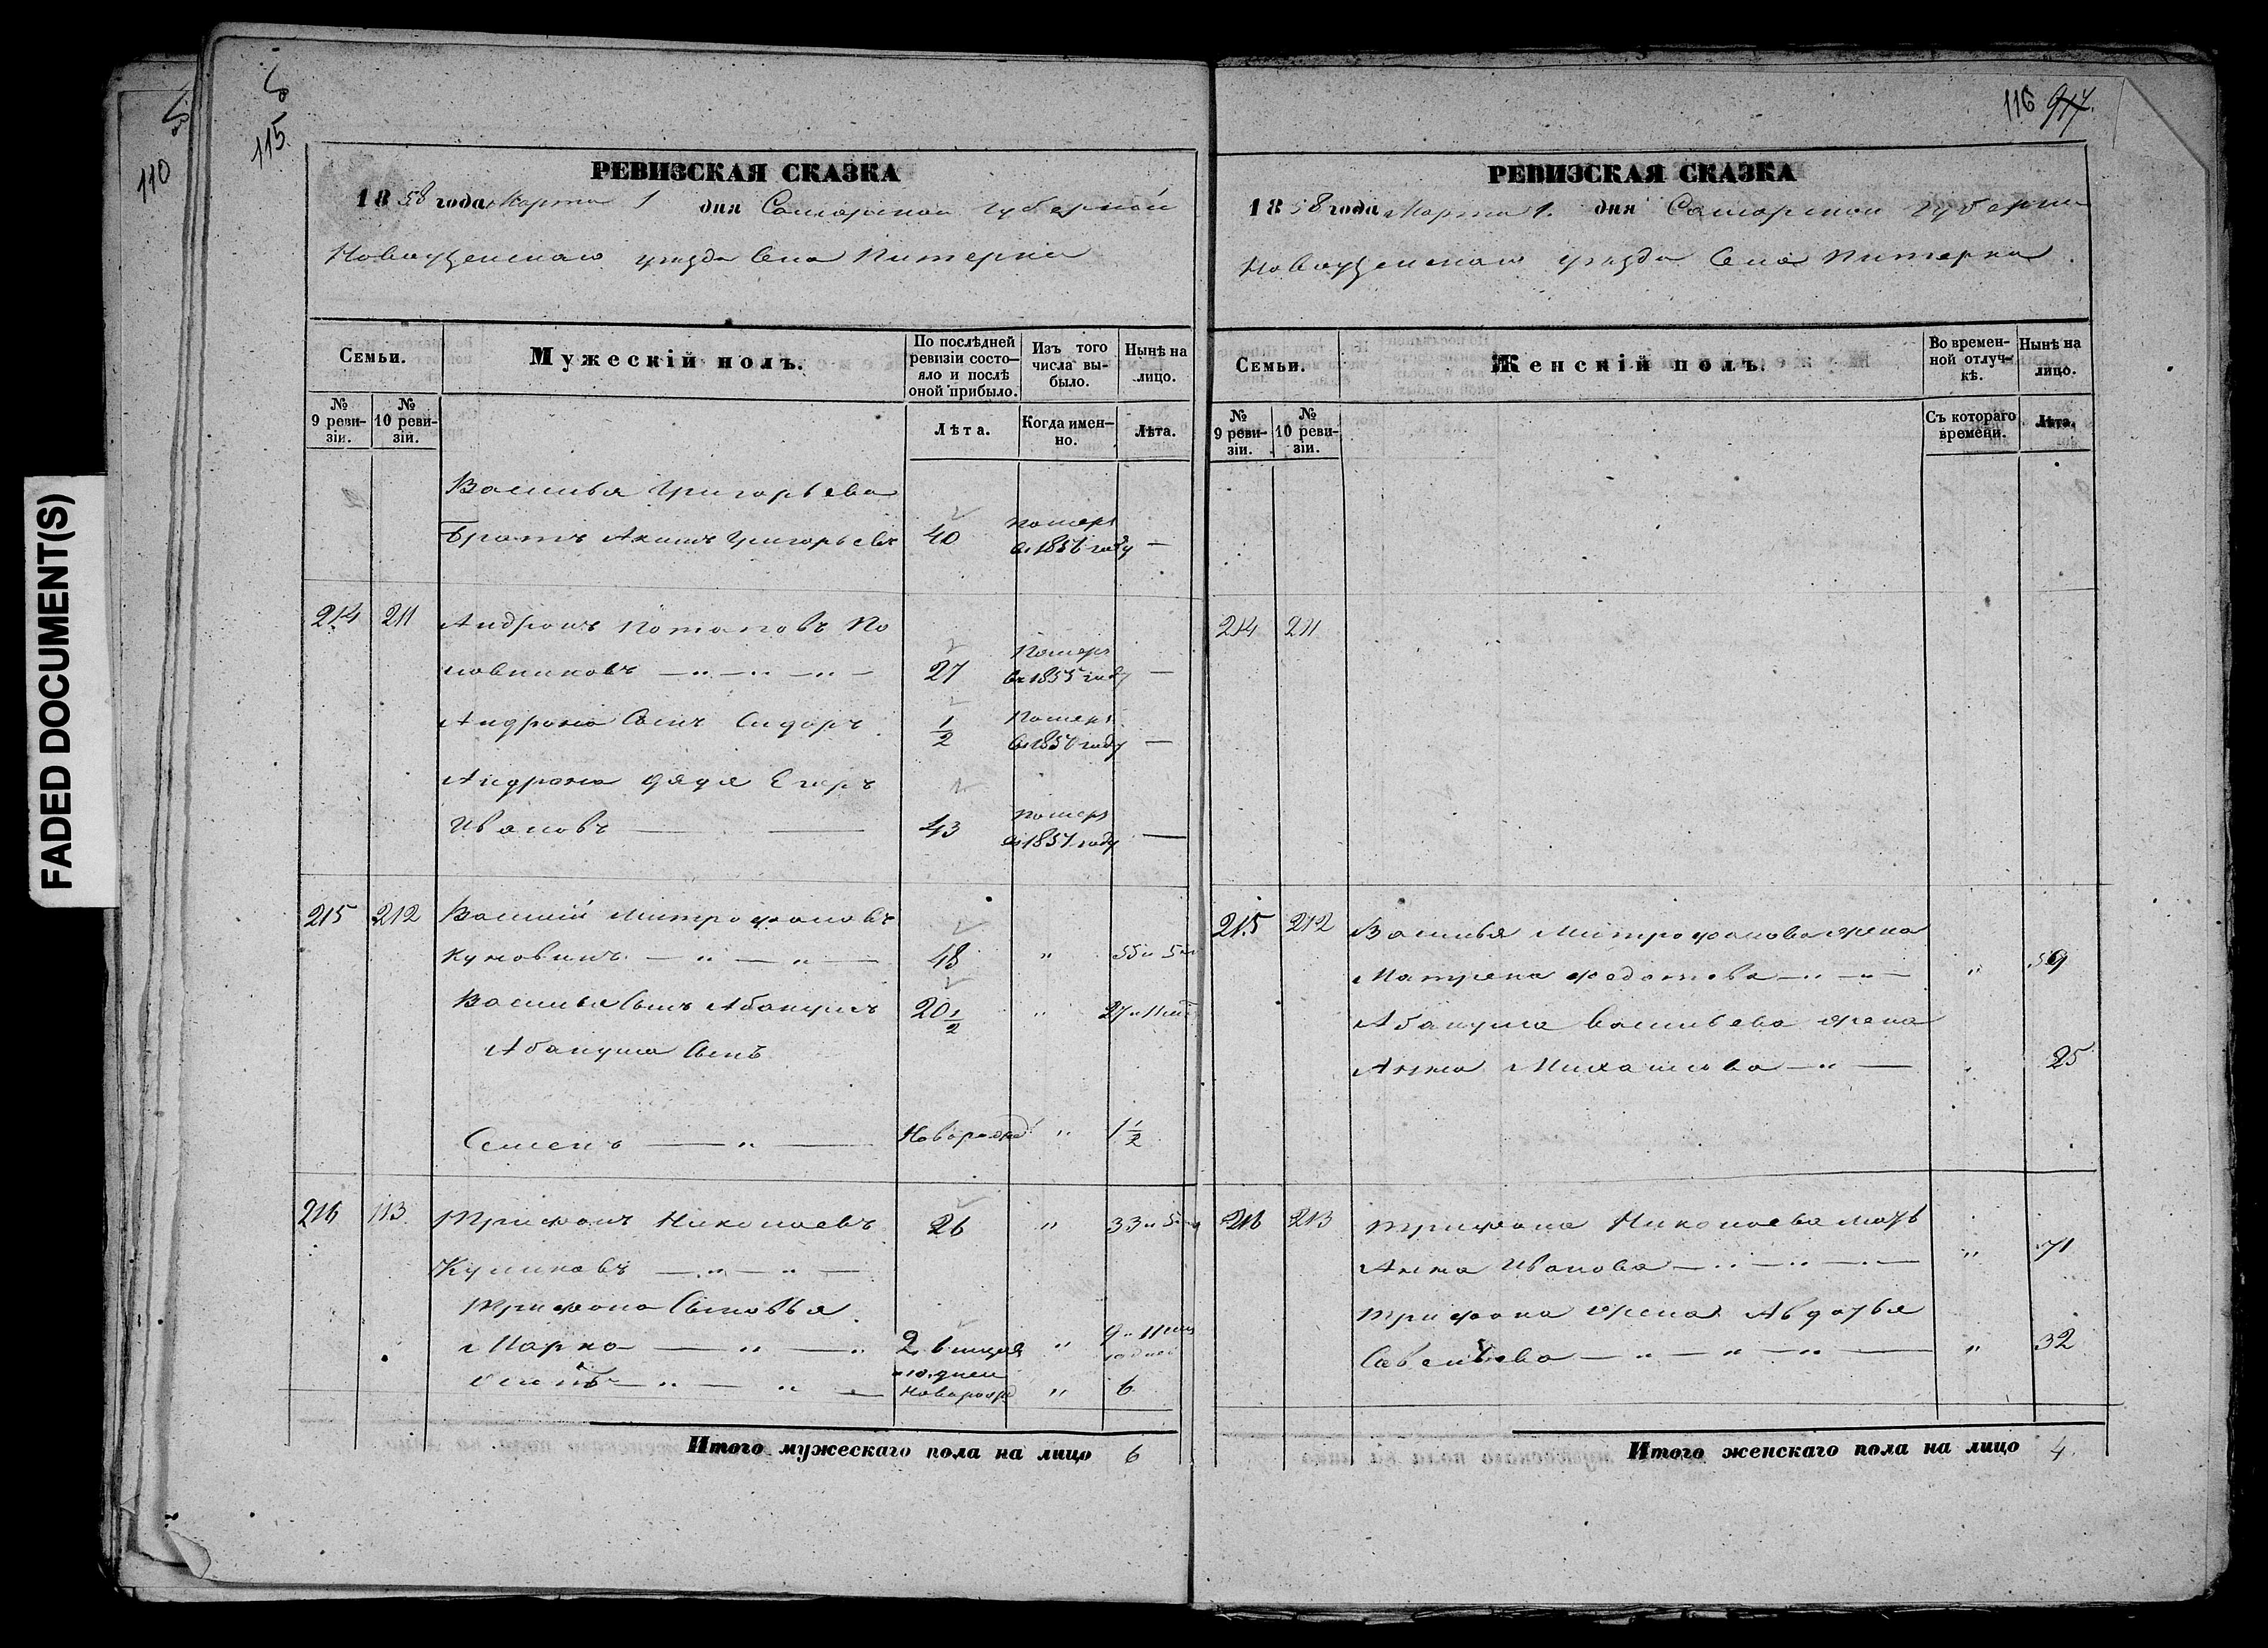 FADED DOCUMENT(S)
110
115.
РЕВИЗСКАЯ СКАЗКА
1858 года Марта 1 дня Самарской губернии
Новоузенскаго уезда Села Питерки
Семьи.
Мужескій полъ.
По послѣдней ревизіи состо-яло и послѣ оной прибыло.
Изъ того числа вы-было.
Нынѣ на лицо.
№ 9 реви-зіи.
№ 10 реви-зіи.
Лѣта.
Когда имен-но.
Лѣта.
Василья Григорьева
Братъ Акимъ Григорьевъ 40 померъ въ 1856 году —
214 211 Андронъ Потаповъ По
ловниковъ — „ — „ — „ — 27 Померъ въ 1855 году —
Андрона Сынъ Сидоръ 1/2 Померъ въ 1850 году —
Андрона дядя Егоръ
Ивановъ — — 43 померъ въ 1857 году —
215 212 Василій Митрофановъ
Кумовинъ — „ — „ — 48 „ 55 и 5 м
Василья Сынъ Абакумъ 20 1/2 „ 27 и 11 мес
Абакума Сынъ
Семенъ — „ — Новорожд „ 1 1/2
216 113 Трифонъ Николаевъ 26 „ 33 и 5 м
Куликовъ — „ — „ —
Трифона Сыновья
Марко — „ — „ 2, 6 мцов и 10 дней „ 9 и 11 мес 10 дней
— „ — „ — Новорожд „ 6
Итого мужескаго пола на лицо 6
116 917.
РЕВИЗСКАЯ СКАЗКА
1858 года Марта 1. дня Самарской губерни
Новоузенскаго уезда Села Питерка
Семьи.
Женскій полъ.
Во времен-ной отлуч-кѣ.
Нынѣ на лицо.
№ 9 реви-зіи.
№ 10 реви-зіи.
Съ котораго времени.
Лѣта.
214 211
215 212 Василья Митрофанова жена
Матрена Федотова — „ — „ — „ 59
Абакума Васильева жена
Анна Михайлова — „ — „ 25
216 213 Трифона Николаева мать
Анна Иванова — „ — „ — „ — „ 71
Трифона жена Авдотья
Савельева — „ — „ — „ — „ 32
Итого женскаго пола на лицо 4.